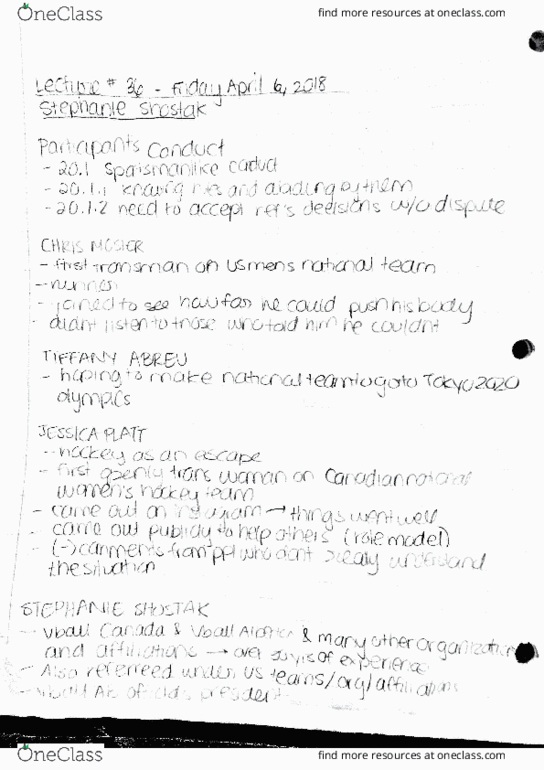 OneClass
find more resources at oneclass.com
Lecture # 36 - Friday April 6, 2018
Stephanie Shostak
Participants Conduct
- 20.1 Sportsmanlike conduct
- 20.1.1 knowing rules and abiding by them
- 20.1.2 need to accept ref's decisions w/o dispute
CHRIS MOSIER
- first transman on US mens national team
- runner
- joined to see how far he could push his body
- didnt listen to those who told him he couldnt
TIFFANY ABREU
- hoping to make national team to go to Tokyo 2020
olympics
JESSICA PLATT
- hockey as an escape
- first openly trans woman on Canadian national
women's hockey team
- came out on instagram → things went well
- came out publicly to help others (role model)
- (-) comments from ppl who dont really understand
the situation
STEPHANIE SHOSTAK
- vball Canada & vball Alberta & many other organizations
and affiliations → over yrs of experience
- Also refereed under US teams/org/affiliations
- vball AB president
OneClass
find more resources at oneclass.com